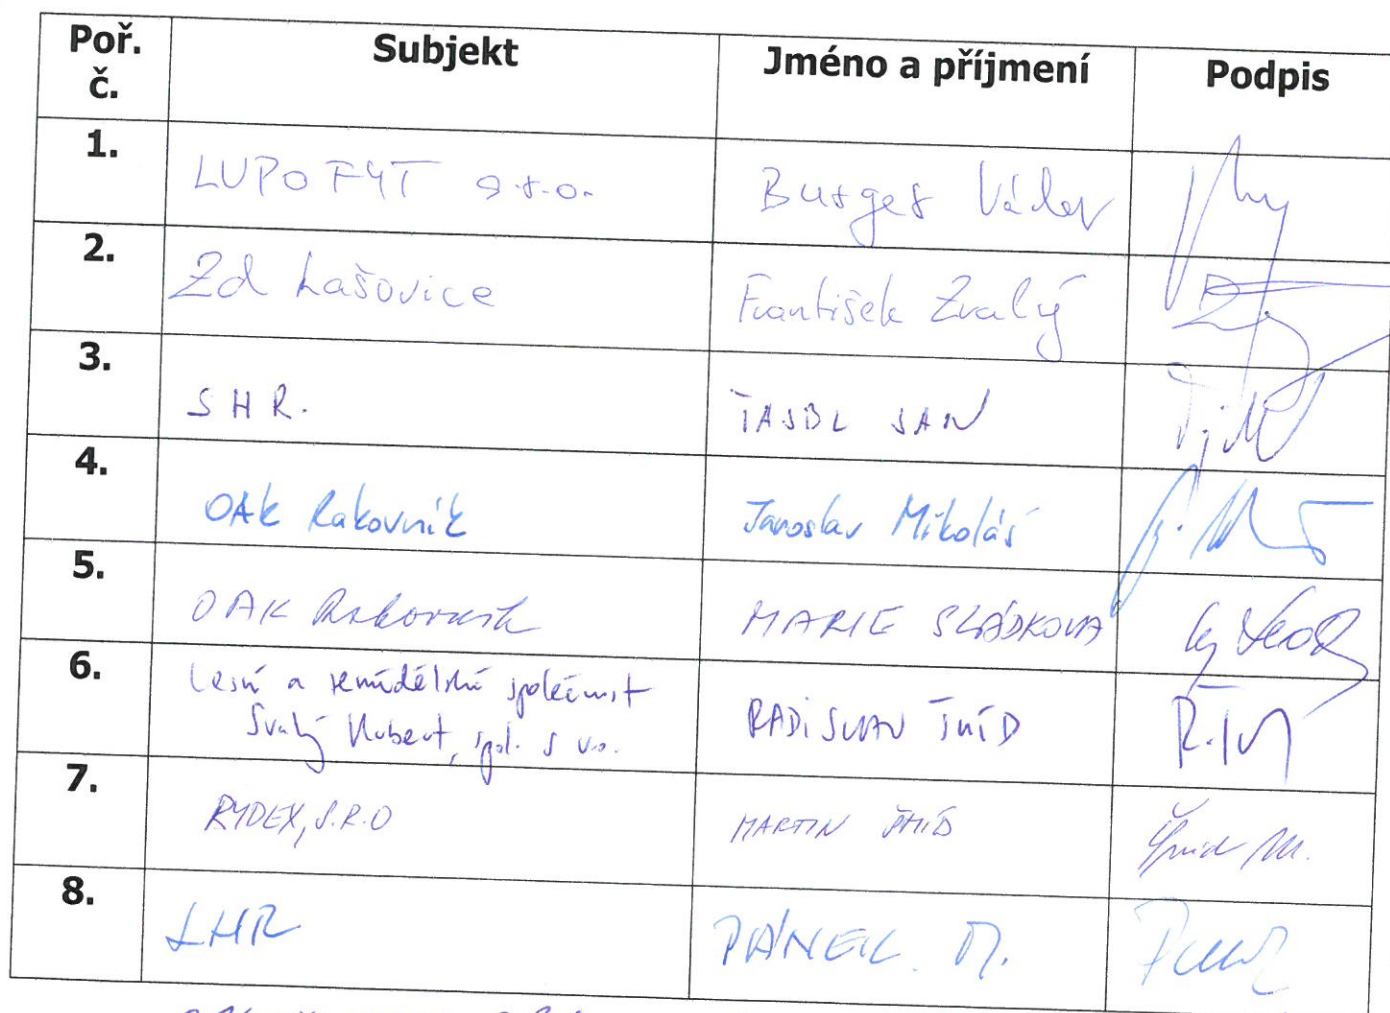 Poř. č. Subjekt Jméno a příjmení Podpis
1. LUPOFYT s.r.o. Burger Václav
2. Zd Lašovice František Zralý
3. SHR. JAN
4. OAK Rakovník Jaroslav Mikoláš
5. OAK Rakovník MARIE SLÁDKOVÁ
6. Lesní a zemědělská společnost
Svatý Hubert, spol. s r.o. RADISLAV ŠMÍD
7. RYDEX, S.R.O MARTIN ŠMÍD
Šmíd M.
8. SHR PÁNEK M.